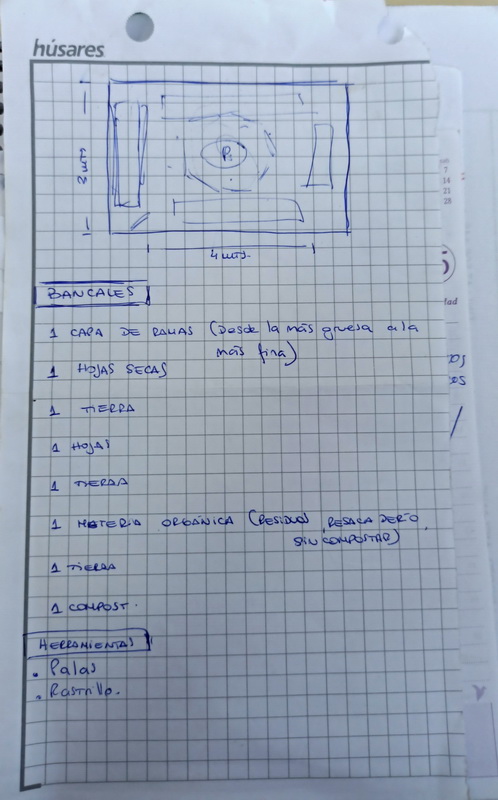 húsares
2 mts
P.
4 mts.
BANCALES
1 CAPA DE RAMAS (Desde la más gruesa a la
más fina)
1 HOJAS SECAS
1 TIERRA
1 HOJAS
1 TIERRA
1 MATERIA ORGÁNICA (RESIDUOS, RESACA DE RÍO,
SIN COMPOSTAR)
1 TIERRA
1 COMPOST.
HERRAMIENTAS
• Palas
• Rastrillo.
7
14
21
28
5
dad